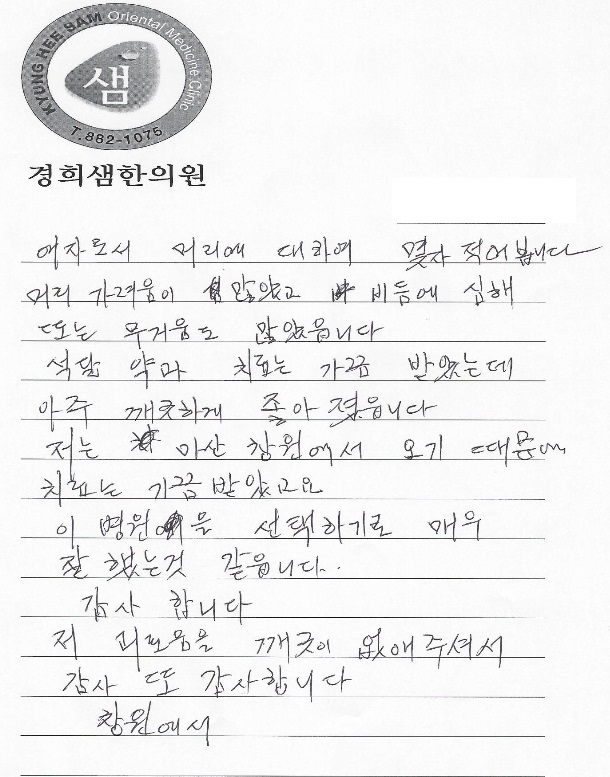 KYUNG HEE SAM Oriental Medicine Clinic
샘
T.882-1075
경희샘한의원
여자로서 머리에 대하여 몇자 적어봅니다
머리 가려움이 많았고 비듬에 심해
또는 무거움도 많았읍니다
석달 약과 치료는 가끔 받았는데
아주 깨끗하게 좋아 졌읍니다
저는 마산 창원에서 오기 때문에
치료는 가끔 받았고요
이 병원을 선택하기로 매우
잘 했는것 같읍니다.
감사 합니다
저 괴로움을 깨끗이 없애주셔서
감사 또 감사합니다
창원에서